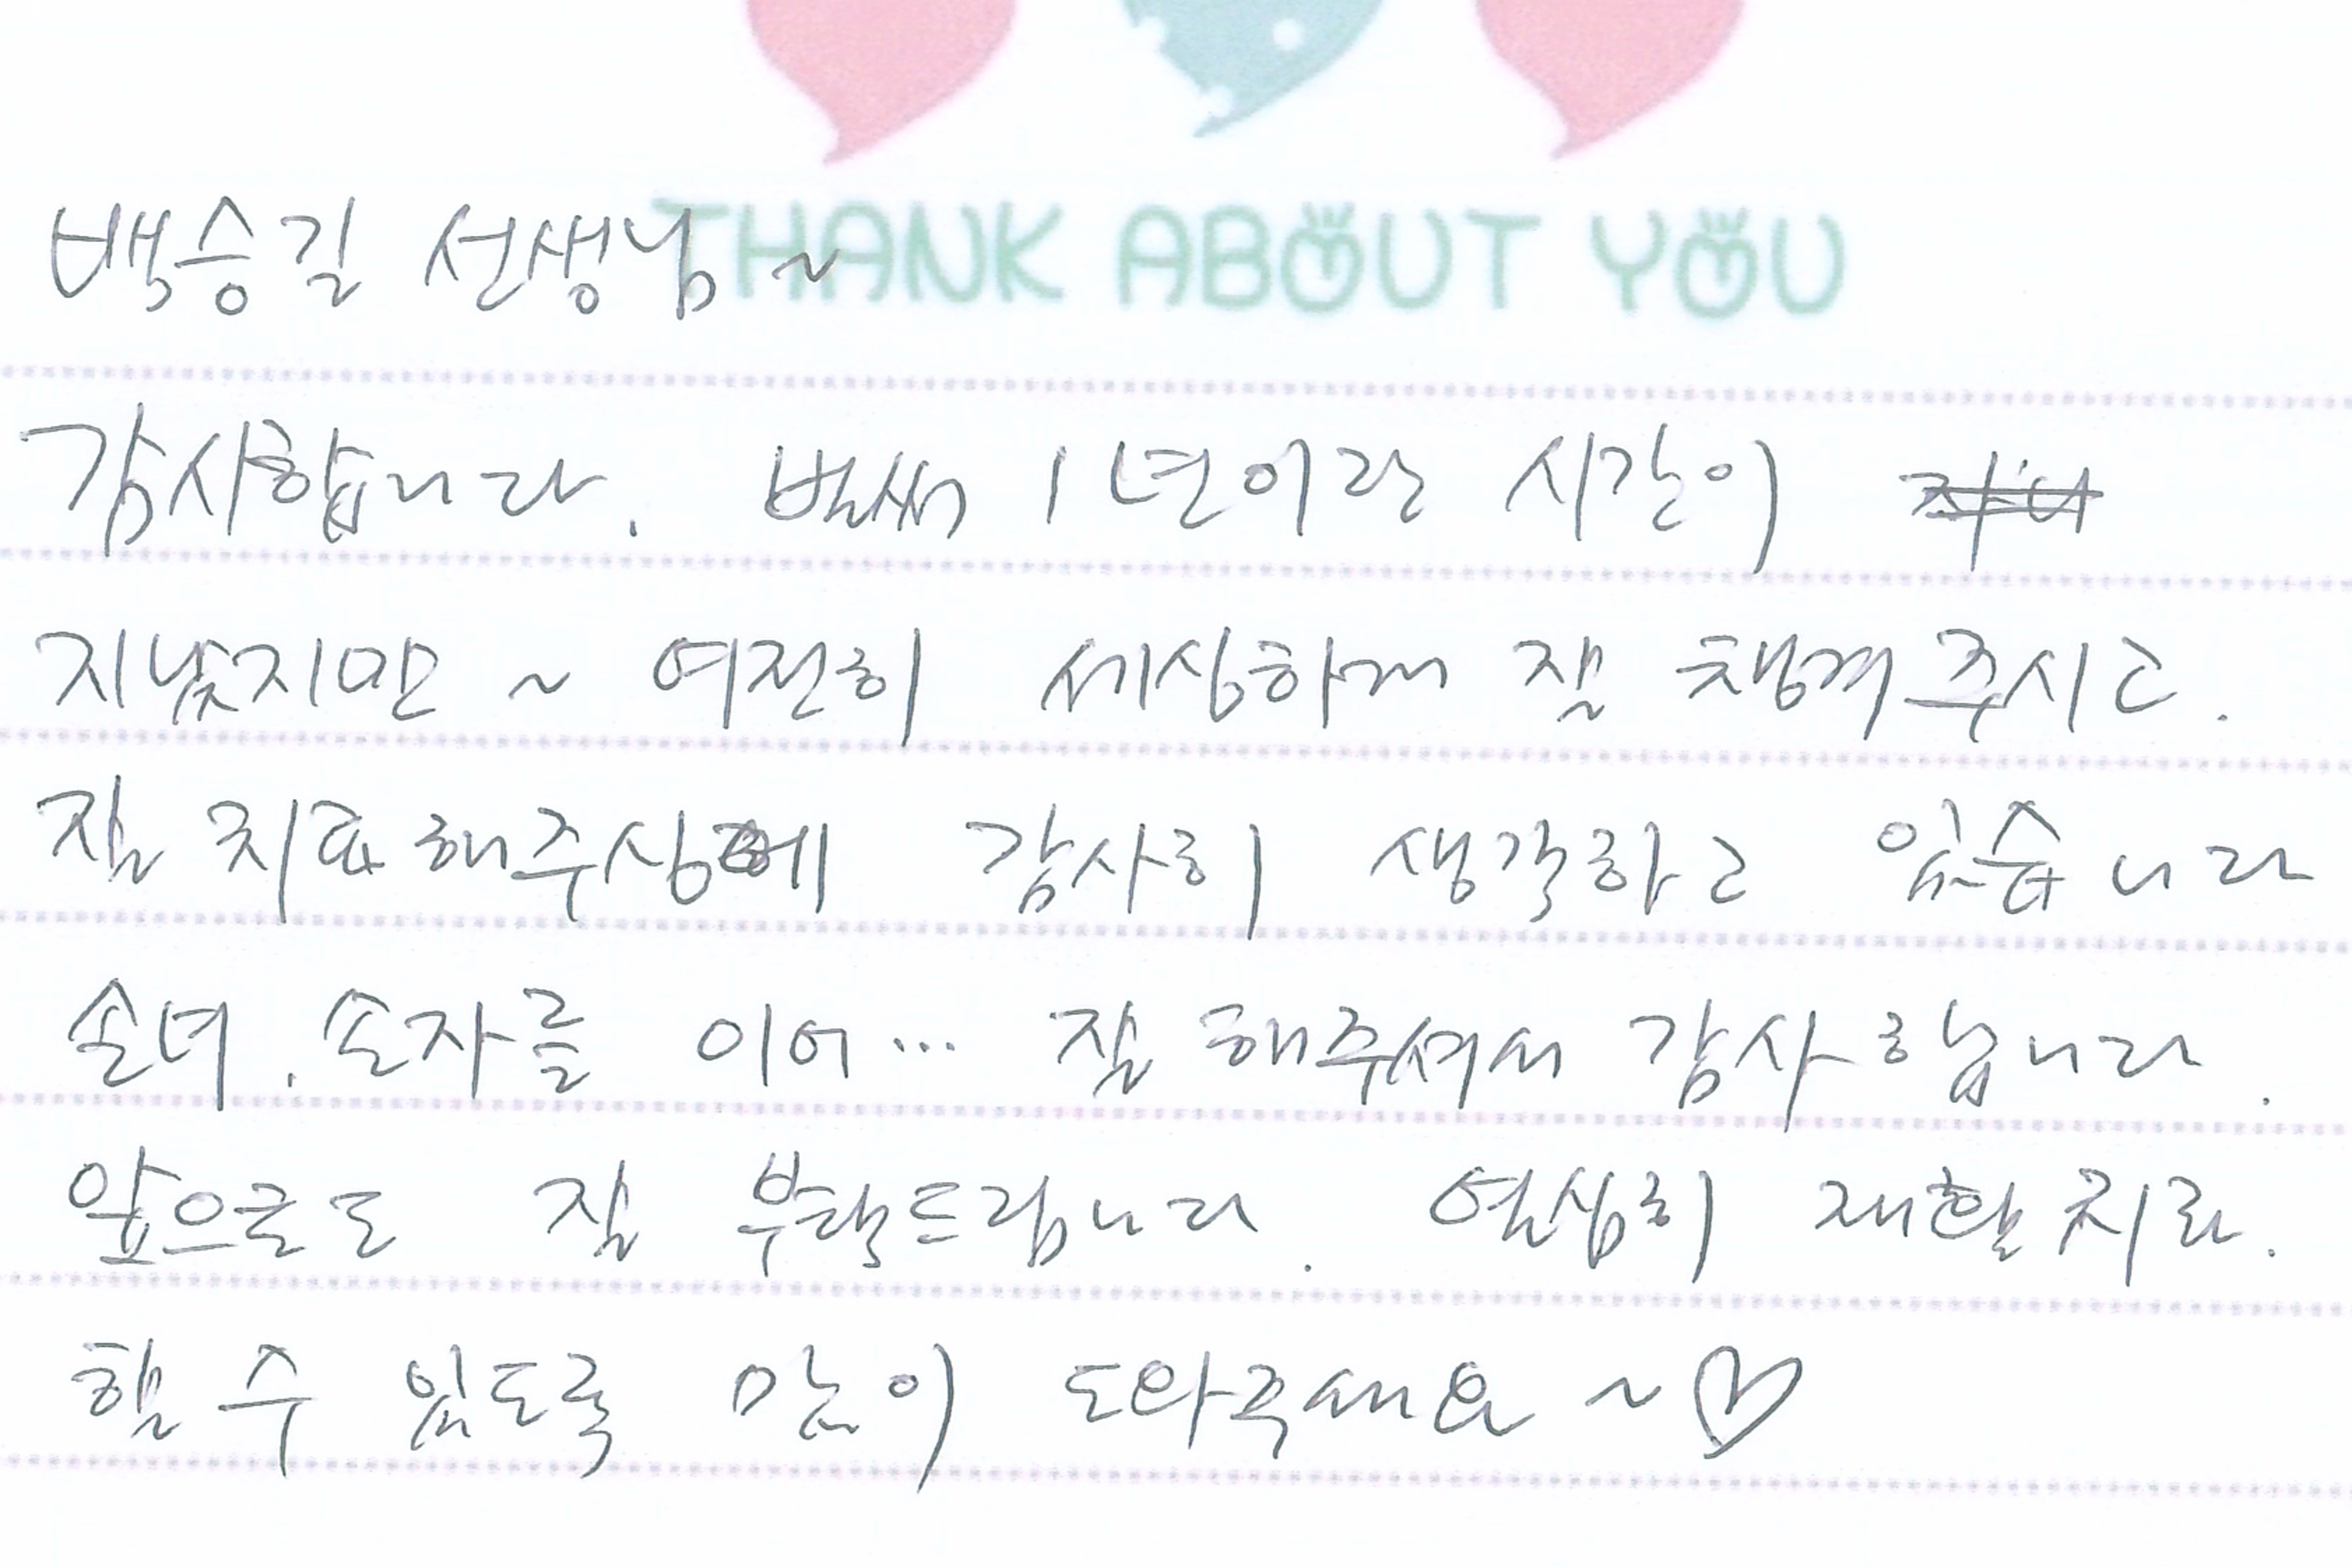 THANK ABOUT YOU
백승길 선생님 ~
감사합니다. 벌써 1년이란 시간이
지났지만 ~ 여전히 세심하게 잘 챙겨주시고.
잘 치료해주심에 감사히 생각하고 있습니다
손녀. 손자를 이어... 잘 해주셔서 감사합니다.
앞으로도 잘 부탁드립니다. 열심히 재활치료.
할 수 있도록 많이 도와주세요 ~♡